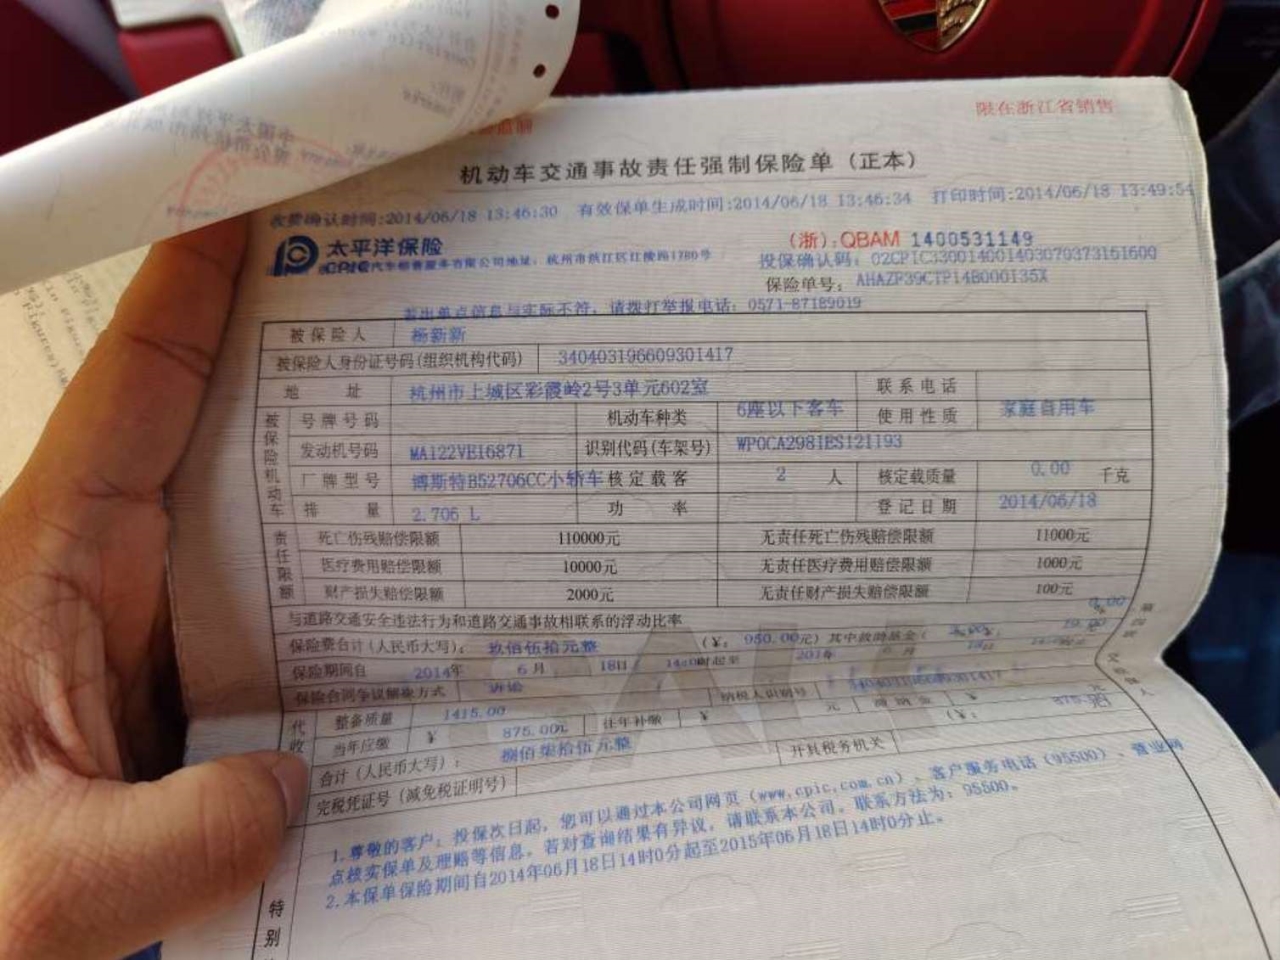 限在浙江省销售
机动车交通事故责任强制保险单（正本）
收费确认时间:2014/06/18 13:46:30 有效保单生成时间:2014/06/18 13:46:34 打印时间:2014/06/18 13:49:54
太平洋保险
CPIC
汽车销售服务有限公司地址：杭州市滨江区江陵路1780号
（浙）：QBAM 1400531149
投保确认码：02CPIC330014001403070373151600
保险单号：AHAZP39CTP14B000135X
若出单点信息与实际不符，请拨打举报电话：0571-87189019
被保险人 杨新新
被保险人身份证号码（组织机构代码） 340403196609301417
地址 杭州市上城区彩霞岭2号3单元602室 联系电话
被保险机动车
号牌号码 机动车种类 6座以下客车 使用性质 家庭自用车
发动机号码 MA122VE16871 识别代码（车架号） WP0CA2981ES121193
厂牌型号 博斯特B52706CC小轿车 核定载客 2 人 核定载质量 0.00 千克
排量 2.706 L 功率 登记日期 2014/06/18
责任限额
死亡伤残赔偿限额 110000元 无责任死亡伤残赔偿限额 11000元
医疗费用赔偿限额 10000元 无责任医疗费用赔偿限额 1000元
财产损失赔偿限额 2000元 无责任财产损失赔偿限额 100元
与道路交通安全违法行为和道路交通事故相联系的浮动比率 0.00 %
保险费合计（人民币大写）： 玖佰伍拾元整 （￥： 950.00元）其中救助基金（
保险期间自 2014年 6月 18日 14:0时起至
保险合同争议解决方式 诉讼
代收
整备质量 1415.00 纳税人识别号
当年应缴 ￥ 875.00元 往年补缴 ￥ 元 滞纳金 ￥
合计（人民币大写）： 捌佰柒拾伍元整 （￥：
完税凭证号（减免税证明号） 开具税务机关
1.尊敬的客户：投保次日起，您可以通过本公司网页（www.cpic.com.cn）、客户服务电话（95500）、营业网
点核实保单及理赔等信息。若对查询结果有异议，请联系本公司。联系方法为：95500。
2.本保单保险期间自2014年06月18日14时0分起至2015年06月18日14时0分止。
特别